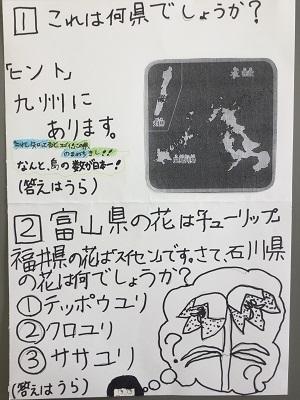 1 これは何県でしょうか?
「ヒント」
九州に
あります。
なんと、島の数が日本一!
(答えはうら)
2 富山県の花はチューリップ
福井県の花はスイセンです。さて、石川県
の花は何でしょうか?
①テッポウユリ
②クロユリ
③ササユリ
(答えはうら)
?
?